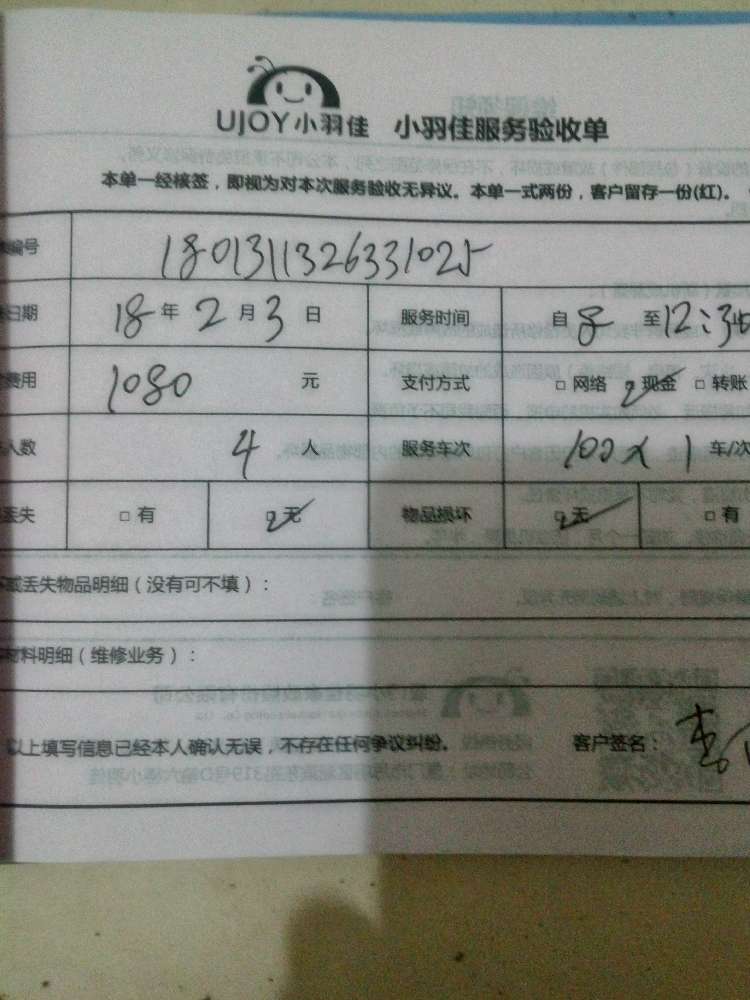 UJOY小羽佳 小羽佳服务验收单
本单一经核签，即视为对本次服务验收无异议。本单一式两份，客户留存一份(红)。
编号 1801311326331025
日期 18 年 2 月 3 日 服务时间 自 8 至 12:30
费用 1080 元 支付方式 □ 网络 现金 □ 转账
人数 4 人 服务车次 100 x 1 车/次
丢失 □ 有 □ 无 物品损坏 □ 无 □ 有
或丢失物品明细（没有可不填）：
材料明细（维修业务）：
以上填写信息已经本人确认无误，不存在任何争议纠纷。 客户签名：